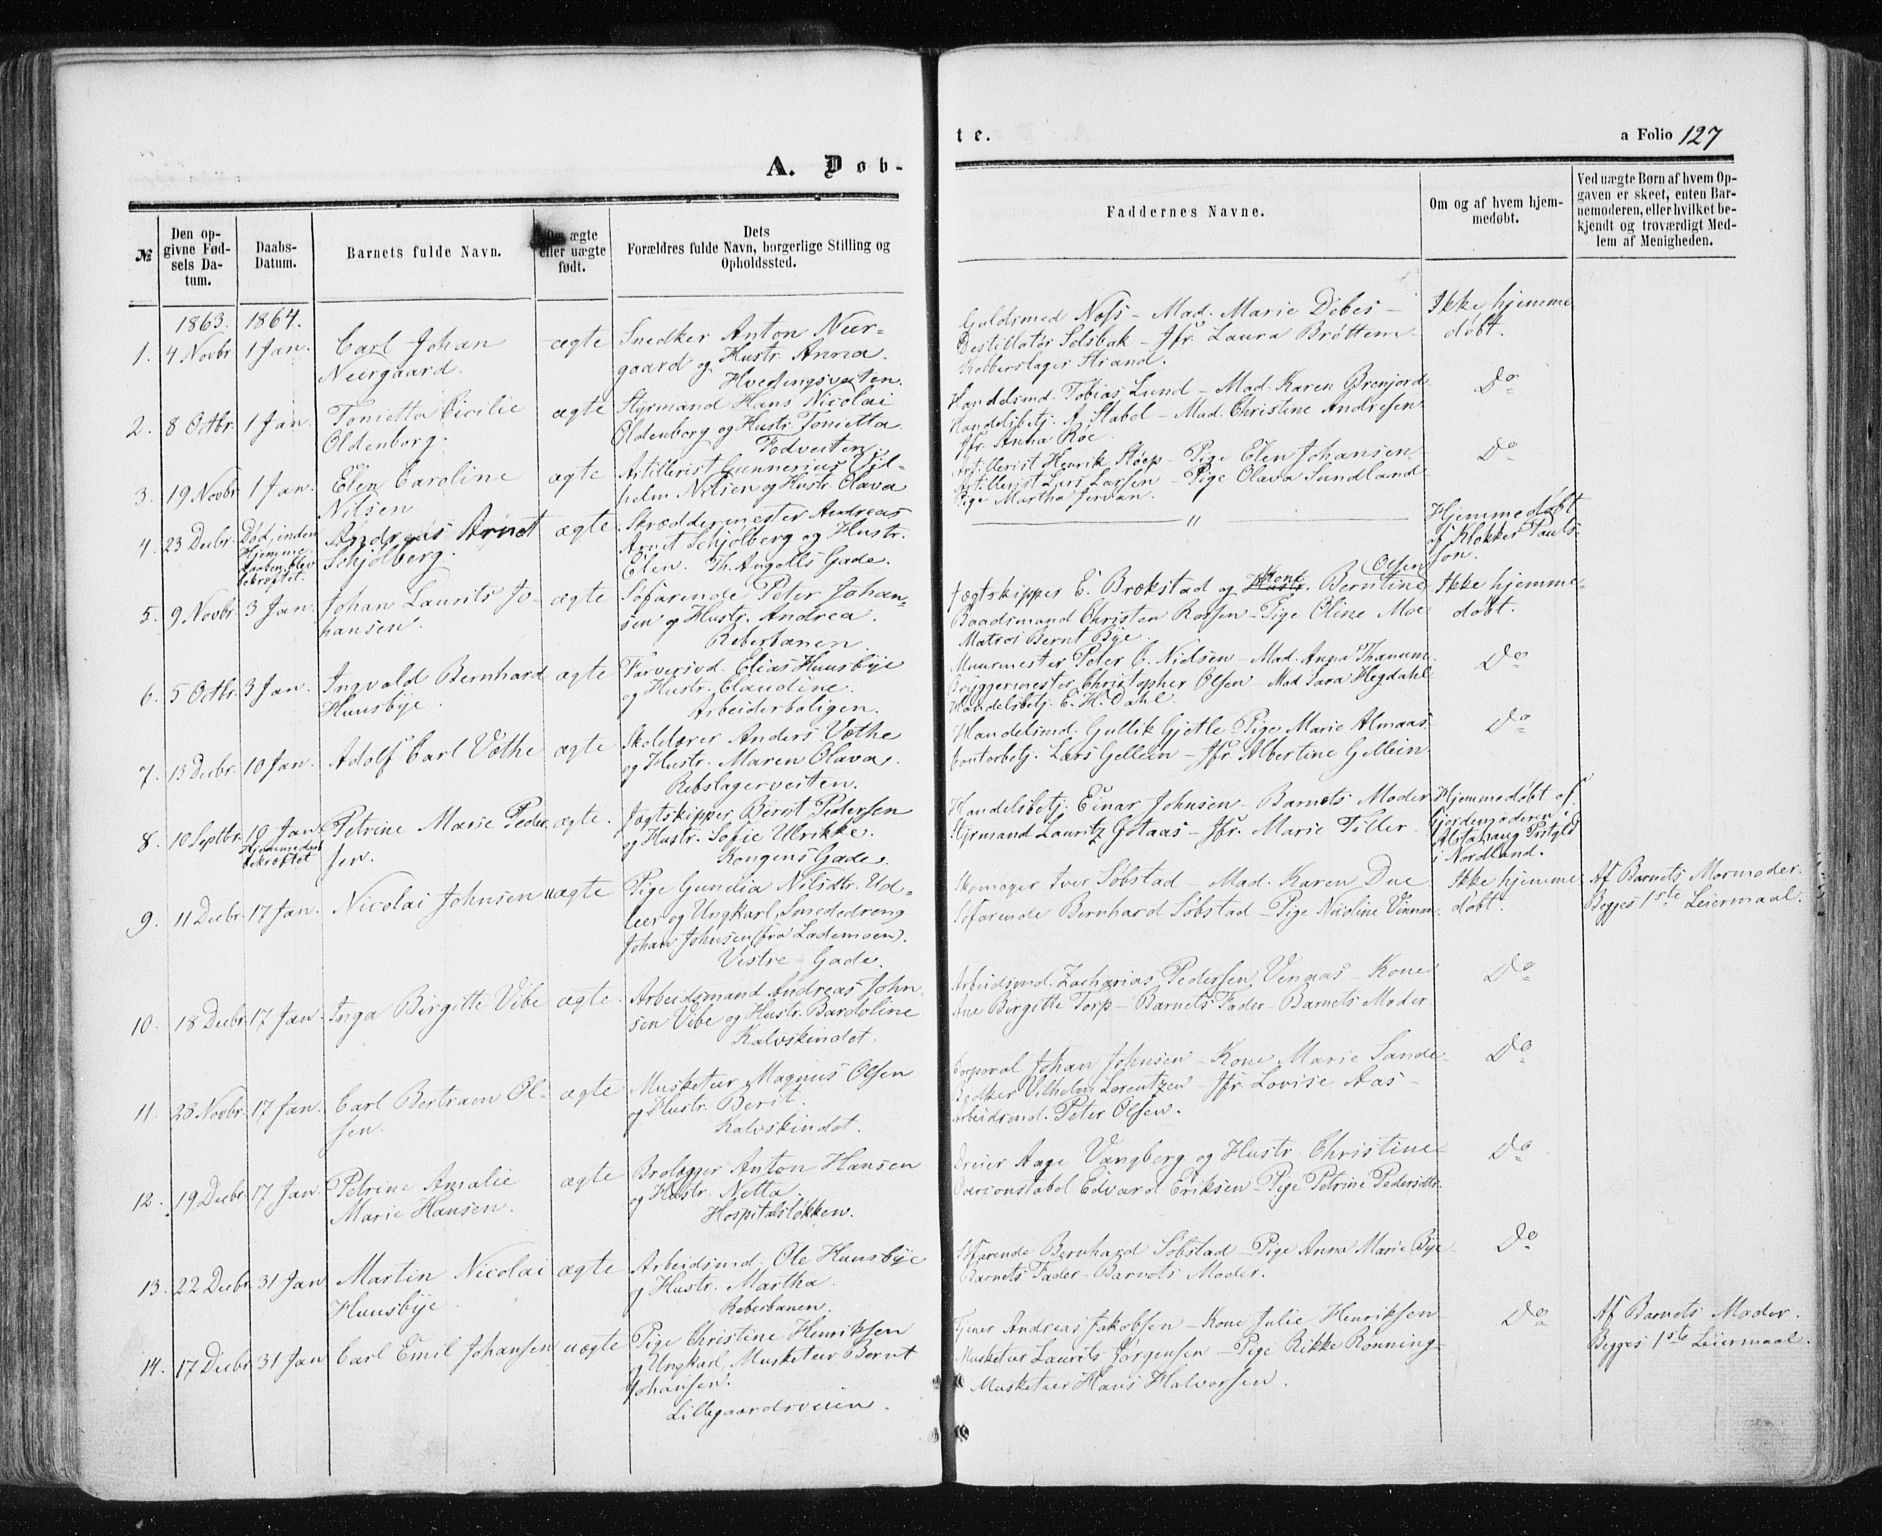 A. Døb-
te.
a Folio 127
№
Den op-
givne Fød-
sels Da-
tum.
Daabs-
Datum.
Barnets fulde Navn.
Om ægte
eller uægte
født.
Dets
Forældres fulde Navn, borgerlige Stilling og
Opholdssted.
Faddernes Navne.
Om og af hvem hjem-
medøbt.
Ved uægte Børn af hvem Op-
gaven er skeet, enten Bar-
nemoderen, eller hvilket be-
kjendt og troværdigt Med-
lem af Menigheden.
1863. 1864.
1. 4 Novbr 1 Jan.
Carl Johan
Neergaard.
ægte
Snedker Anton Neer-
gaard og Hustr. Anna.
Hvedingsveiten.
Guldsmed Noss - Mad. Marie Debes -
Destillatør Solsbak - Jfr. Laura Brøttem -
Kobberslager Strand.
Ikke hjemme
døbt.
2. 8 Octbr 1 Jan.
Tonietta Cicilie
Oldenborg.
ægte
Styrmand Hans Nicolai
Oldenborg og Hustr. Tonietta
Fodveiten.
Handelsmd. Tobias Lund - Mad. Karen Grenjord
Handelsbetj. A. Stabel - Mad. Christine Andresen
Jfr. Anna Roe.
Do
3. 19 Novbr 1 Jan.
Elen Caroline
Nilsen
ægte
Artillerist Gunnerius Vil-
helm Nilsen og Hustr. Olava
Artillerist Henrik Støep - Pige Elen Johansen
Artillerist Lars Larsen - Pige Olava Sundland
Pige Martha Jervan.
Do
4. 23 Decbr
Død, inden
Hjemme-
daaben blev
bekræftet.
Andreas Arnet
Schjølberg.
ægte
Skræddermester Andreas
Arnet Schjølberg og Hustr.
Elen. Th. Angells Gade.
"
Hjemmedøbt
af Klokker Pauls-
son.
5. 9 Novbr 3 Jan.
Johan Laurits Jo-
hansen.
ægte
Søfarende Peter Johan-
sen og Hustr. Andrea.
Reberbanen.
Jægtskipper E. Brækstad og Hustr. Kone Berntine Olsen
Baadsmand Christen Rossen - Pige Oline Moe
Matros Bernt Bye.
Ikke hjemme-
døbt.
6. 5 Octbr. 3 Jan.
Ingvald Bernhard
Huusbye.
ægte
Farversvd. Elias Huusbye
og Hustr. Claudine.
Arbeiderboligen.
Muurmester Peter C. Nielsen - Mad. Anna Thanum
Bryggermester Christopher Olsen - Mad Sara Hegdahl
Handelsbetj. E. H. Dahl.
Do
7. 13 Decbr. 10 Jan.
Adolf Carl Væthe
ægte
Skolelærer Anders Væthe
og Hustr. Maren Olava.
Rebslagerveiten.
Handelsmd. Gullik Gjetle Pige Marie Almaas
Contorbetj. Lars Gellein - Jfr. Albertine Gellein
Do
8. 10 Septbr. 10 Jan.
Hjemmedaab
bekræftet
Petrine Marie Peder-
sen.
ægte.
Jægtskipper Bernt Pedersen
og Hustr. Sofie Ulrikke.
Kongens Gade.
Handelsbetj. Einar Johnsen - Barnets Moder
Styrmand Lauritz Gotaas - Jfr. Marie Tiller.
Hjemmedøbt af
Jordemoderen i
Alstahaug Prstgld
i Nordland.
9. 11 Decbr. 17 Jan.
Nicolai Johnsen
uægte
Pige Gunelia Nilsdtr. Ud-
leer og Ungkarl, Smededreng
Johan Johnsen fra Lademoen.
Vestre-Gade.
Skomager Iver Søbstad - Mad. Karen Due
Søfarende Bernhard Søbstad - Pige Nicoline Vinnan.
Ikke hjemme
døbt.
Af Barnets Mormoder.
Begges 1ste Leiermaal.
10. 18 Decbr. 17 Jan.
Inga Birgitte Vibe
ægte.
Arbeidsmand Andreas John-
sen Vibe og Hustr. Bardoline
Kalvskindet.
Arbeidsmd. Zacharias Pedersen Venaas - Kone
Ane Birgitte Torp - Barnets Fader - Barnets Moder
Do
11. 28 Novbr. 17 Jan.
Carl Bertram Ol-
sen.
ægte
Musketeer Magnus Olsen
og Hustr. Berit.
Kalvskindet.
Corporal Johan Johnsen - Kone Marie Sande-
Bødker Vilhelm Lorentzen - Jfr. Lovise Aas -
Arbeidsmd. Peter Olsen.
Do
12. 19 Decbr. 17 Jan.
Petrine Amalie
Marie Hansen.
ægte
Brolægger Anton Hansen
og Hustr. Netta.
Hospitalsløkken.
Dreier Aage Vangberg og Hustr. Christine
Overconstabel Edvard Eriksen - Pige Petrine Pedersdtr.
Do
13. 22 Decbr 31 Jan
Martin Nicolai
Huusbye.
ægte
Arbeidsmd. Ole Huusbye
og Hustr. Martha.
Reberbanen.
Søfarende Bernhard Søbstad - Pige Anna Marie Bye
Barnets Fader - Barnets Moder.
Do
14. 17 Decbr 31 Jan
Carl Emil Johansen
uægte
Pige Christine Henriksen
og Ungkarl, Musketeer Bernt
Johansen.
Lillegaardsveien.
Tjener Andreas Jakobsen - Kone Julie Henriksen
Musketeer Laurits Jørgensen - Pige Rikke Rønning-
Musketeer Hans Halvorsen.
Do
Af Barnets Moder.
Begges 1ste Leiermaal.